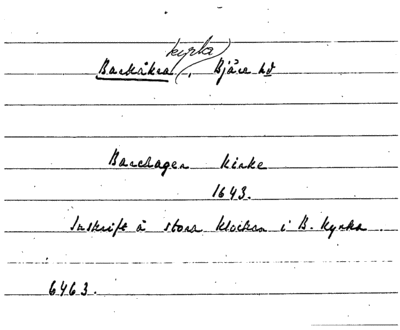 Barkåkra kyrka, Bjäre hd
Barchager Kirke
1643.
Inskrift å stora klockan i B. kyrka
6463.